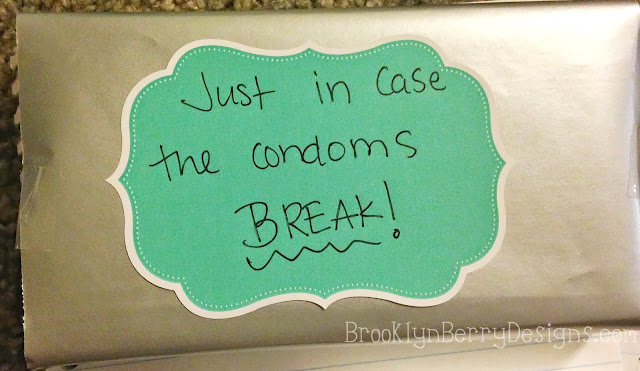 Just in case
the condoms
BREAK!
BrooklynBerryDesigns.com